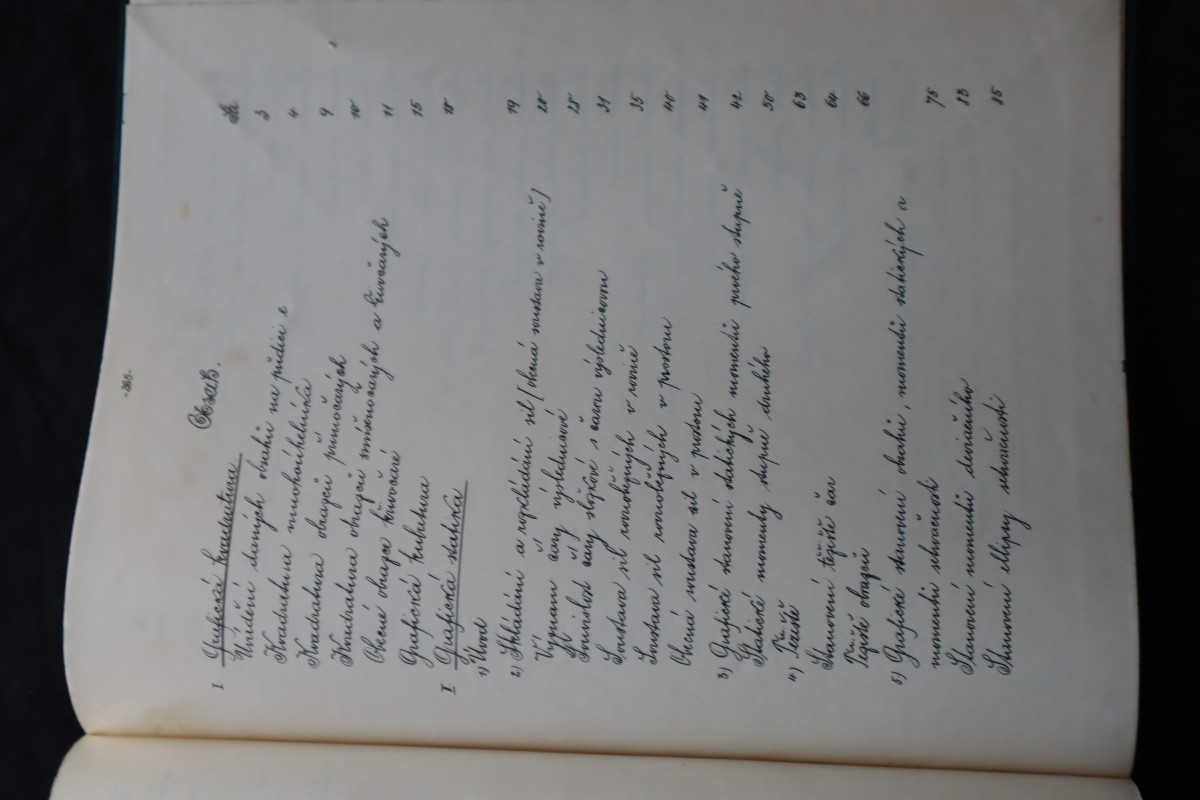 -265-
Obsah.
Str.
I. Grafická kvadratura
Uvádění daných obsahů na půdici e 3
Kvadratura mnohoúhelníka 4
Kvadratura obrazců přímočarých 9
Kvadratura obrazců smíšenočarých a křivočarých 10
Obecné obrazce křivočaré 11
Grafická kubatura 15
I. Grafická statika 18
1) Úvod
2) Skládání a rozkládání sil (obecná soustava v rovině) 19
Význam čáry výslednicové 28
Souvislost čáry složkové s čarou výslednicovou
Soustava sil rovnoběžných v rovině 31
Soustava sil rovnoběžných v prostoru 35
Obecná soustava sil v prostoru
3) Grafické stanovení statických momentů prvého stupně 42
Statické momenty stupně druhého 50
4) Těžiště 63
Stanovení těžiště čar 64
Těžiště obrazců 66
5) Grafické stanovení obsahů, momentů statických a
momentů setrvačnosti 75
Stanovení momentů deviačního 83
Stanovení elipsy setrvačnosti 85